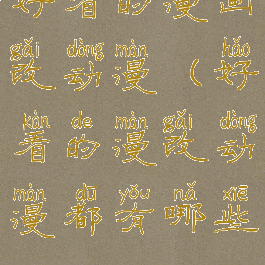 好看的漫画
gǎi dòng màn hǎo
改动漫（好
kàn de màn gǎi dòng
看的漫改动
màn dū yǒu nǎ xiē
漫都有哪些